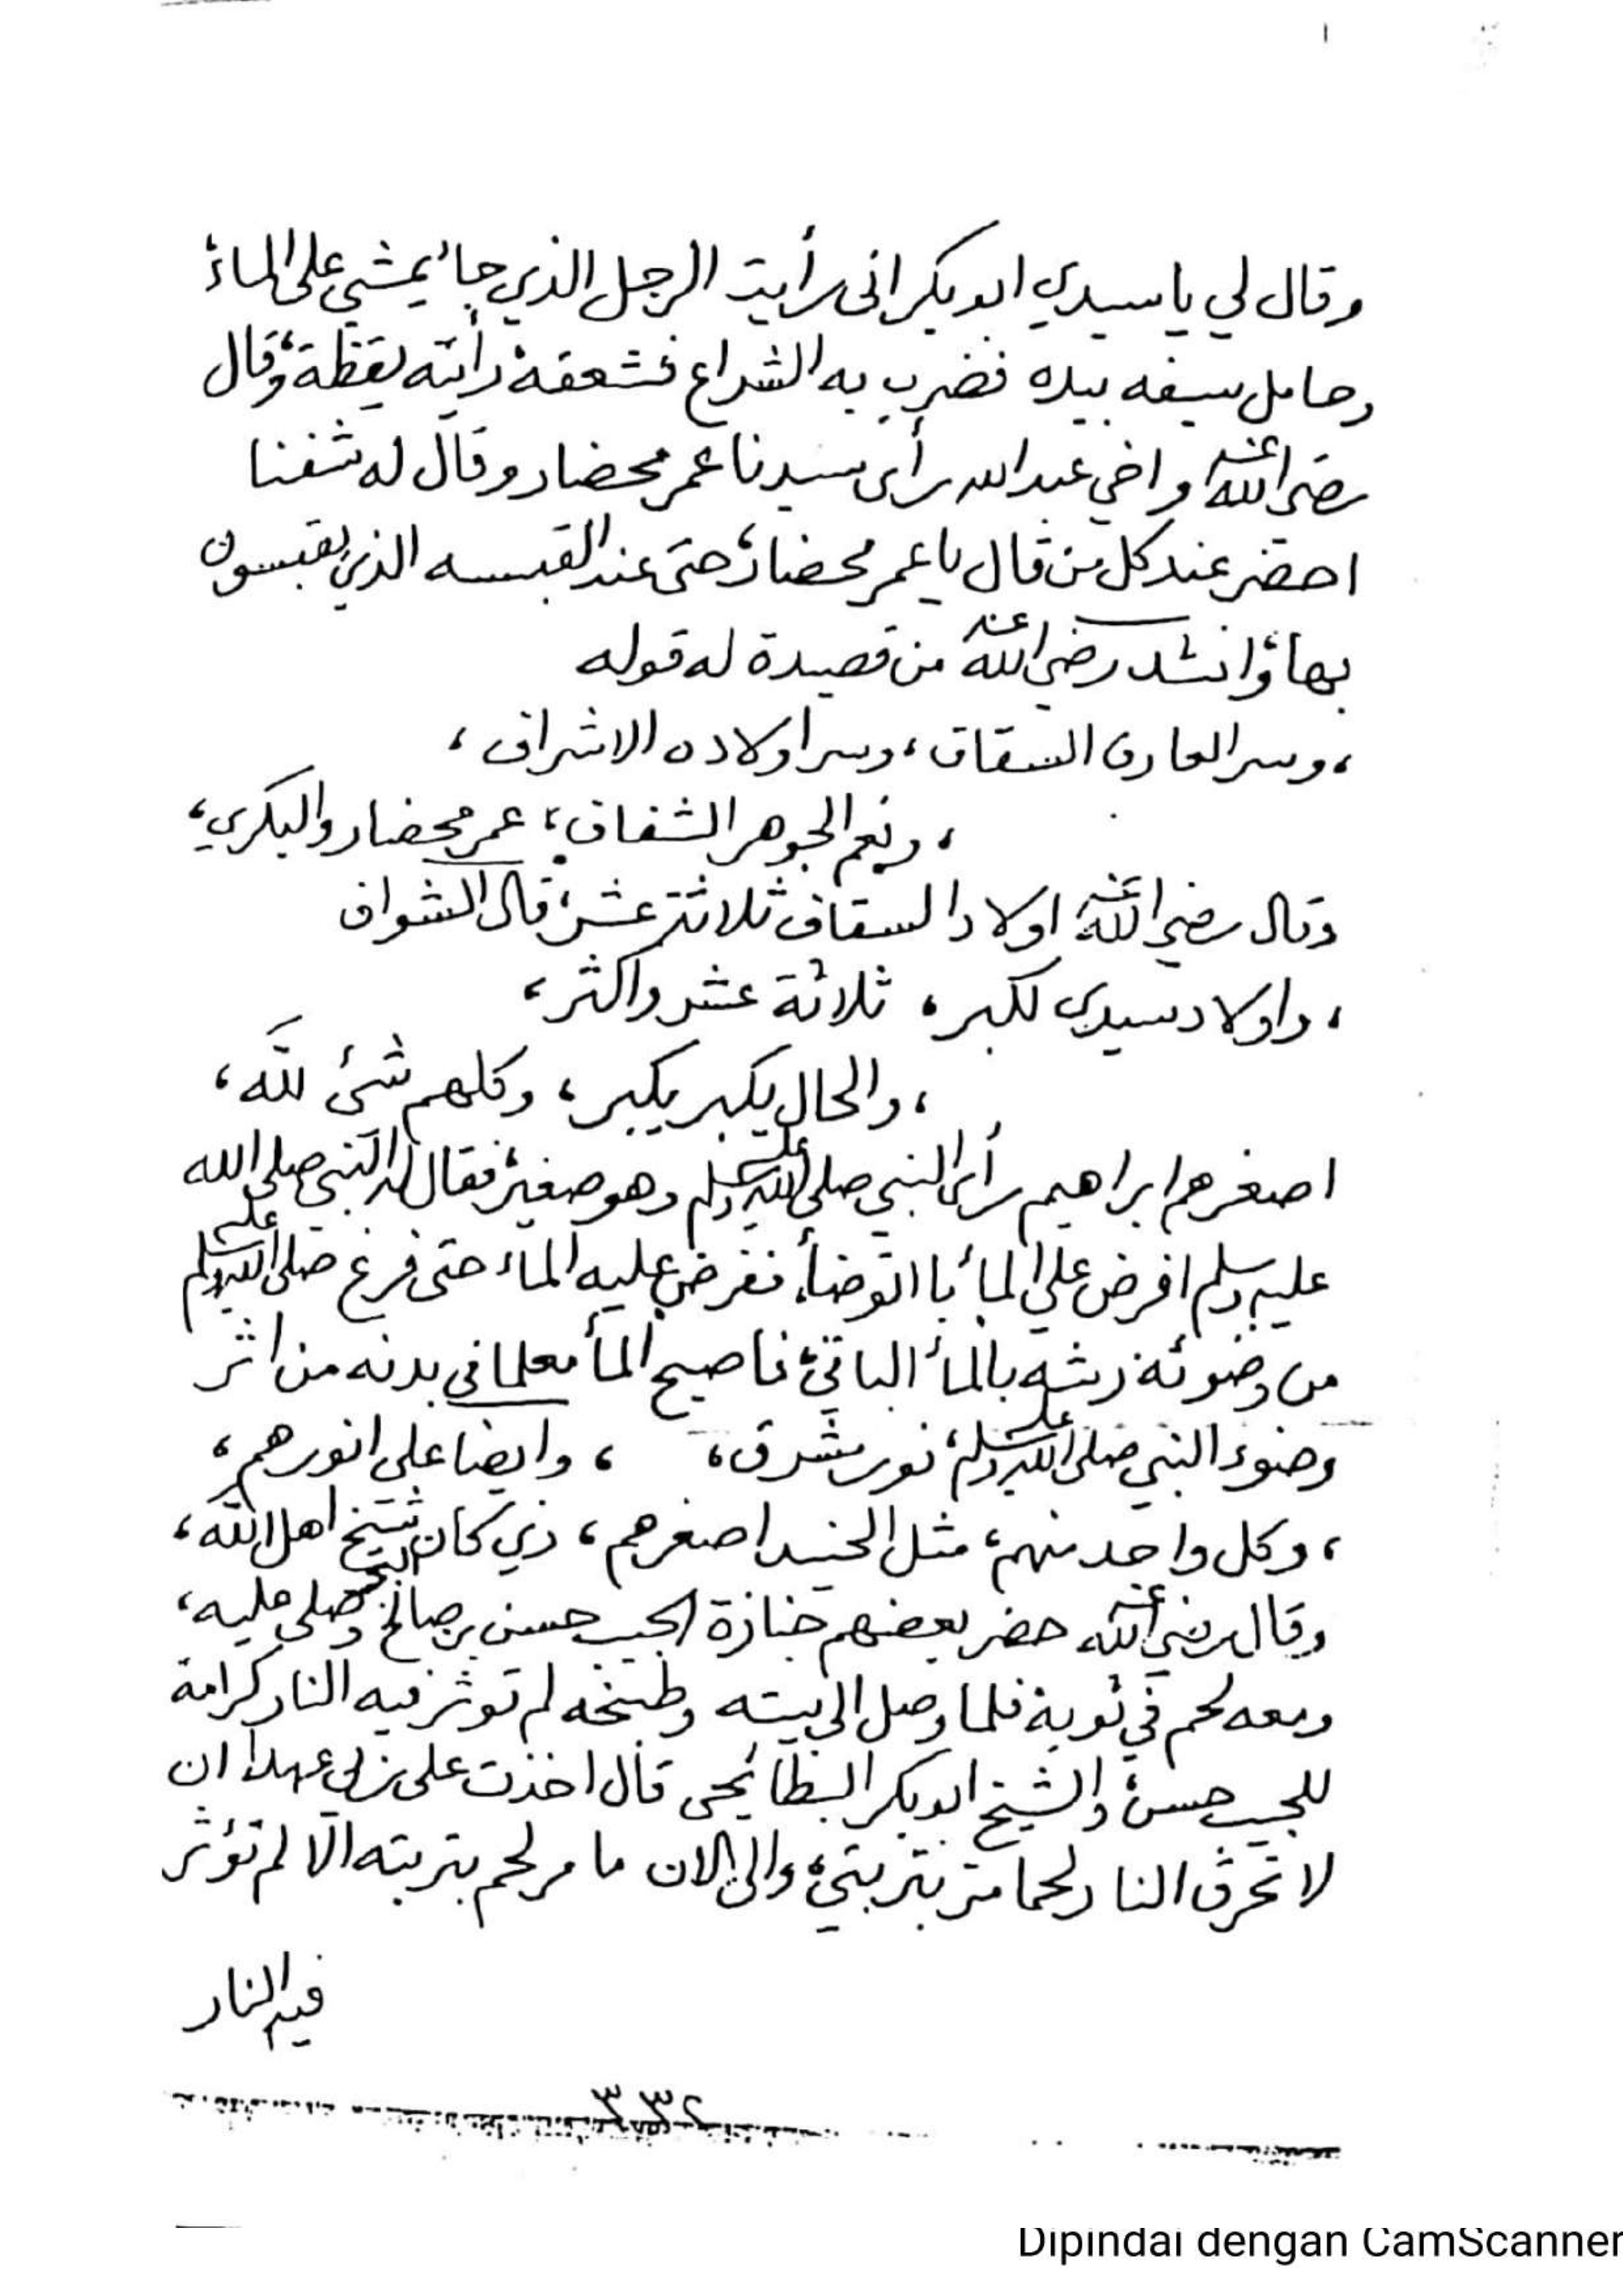 وقال لي ياسيدي ابوبكر انى رأيت الرجل الذي جاء يمشي على الماء
وحامل سيفه بيده فضرب به الشراع فشعقه، رأيته يقظة، وقال
رضي الله عنه واخي عبدالله رأى سيدنا عمر محضار وقال له شفنا
احضر عند كل من قال ياعمر محضار، حتى عند القبسه الذي يقبسون
بها، وانشد رضي الله عنه من قصيدة له قوله
، وسر العارف السقاف ، وسر اولاده الاشراف ،
، ونعم الجوهر الشفاف ، عمر محضار والبكري ،
وقال رضي الله عنه اولاد السقاف ثلاثة عشر، قال الشواف
، واولاد سيدي لكبر ، ثلاثة عشر واكثر ،
، والحال يكبر يكبر ، وكلهم شئ لله ،
اصغرهم ابراهيم رأى النبي صلى الله عليه وسلم وهو صغير، فقال له النبي صلى الله
عليه وسلم افرض علي الماء با اتوضأ، ففرض عليه الماء حتى فرغ صلى الله عليه وسلم
من وضوئه رشه بالماء الباقي، فاصبح الماء معلما في بدنه من اثر
وضوء النبي صلى الله عليه وسلم، نور مشرق ، ، وايضا على انورهم ،
، وكل واحد منهم ، مثل الجنيد اصغرهم ، ذي كان شيخ اهل الله ،
وقال رضي الله عنه حضر بعضهم جنازة الحبيب حسن بن صالح البحر وصلى عليه ،
ومعه لحم في ثوبه فلما وصل الى بيته وطبخه لم تؤثر فيه النار كرامة
للحبيب حسن، والشيخ ابوبكر البطائحي قال اخذت على ربي عهدا ان
لا تحرق النار لحما مر بتربتي، والى الان ما مر لحم بتربته الا لم تؤثر
فيه النار
٣٣٢
Dipindai dengan CamScanner